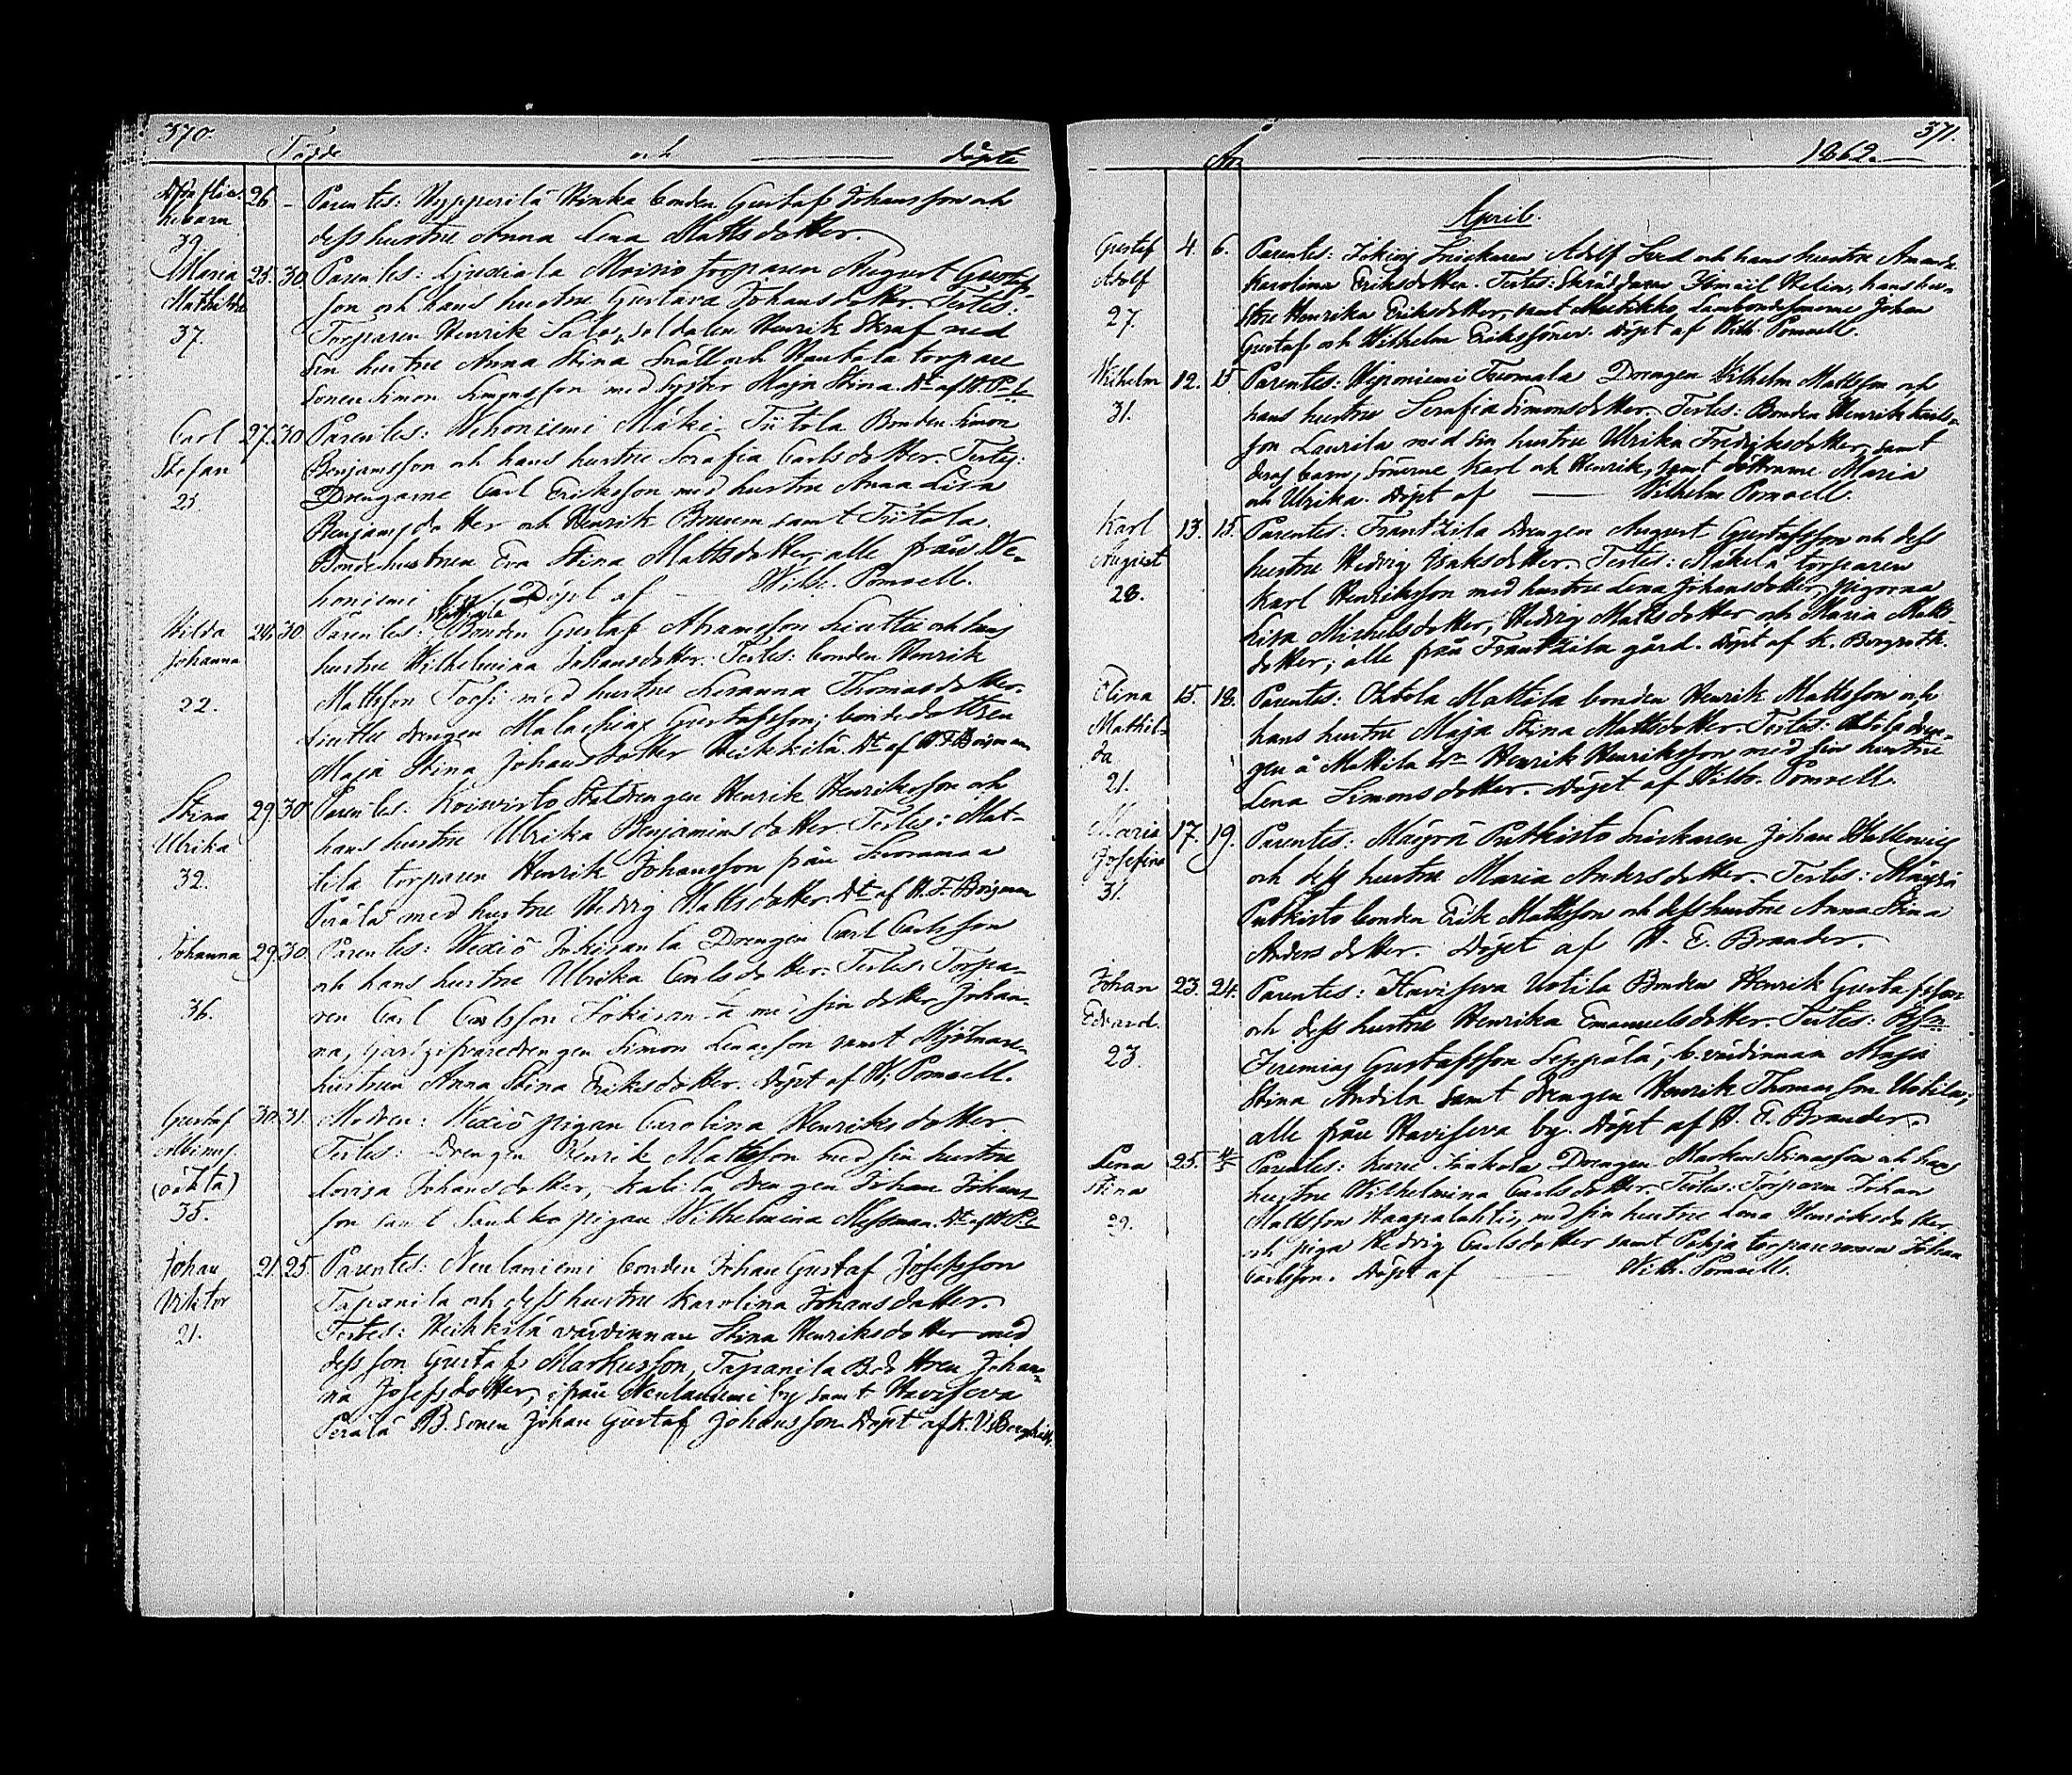 370.
Födde och döpta
26 - Parentes: Hyppärilä Hinka bonden Gustaf Johansson och
39 dess hustru Anna Lena Mattsdotter.
Maria 25. 30 Parentes: Ljuxiala Moisio torparen August Gustafs-
Mathilda son och hans hustru Gustava Johansdotter. Testes:
37. Torparen Henrik Salo, soldaten Henrik Skraf med
sin hustru Anna Stina Snäll och Hautala torpare
sonen Simon Simonsson med syster Maja Stina. Dt af W. P-ll
Carl 27. 30 Parentes: Wehoniemi Mäki-Tiitola Bonden Simon
Stefan Benjamsson och hans hustru Serafia Carlsdotter. Testes:
25. Drengarne Carl Eriksson med hustru Anna Lisa
Benjamsdotter och Henrik Bruun samt Tiitola
Bondehustrun Eva Stina Mattsdotter, alle från We-
honiemi by. Döpt af Wilh. Pomoell.
Hilda 24. 30 Parentes: Bonden Gustaf Abramsson Liuttu och hans
Johanna hustru Wilhelmina Johansdotter. Testes: bonden Henrik
22. Mattsson Torsi med hustru Susanna Thomasdotter,
Liuttu drengen Malachias Gustafsson; bondedottren
Maja Stina Johansdotter Heikkilä. Dt af H. F. Borgman
Stina 29. 30 Parentes: Koiwisto Statdrengen Henrik Henriksson och
Ulrika hans hustru Ulrika Benjaminsdotter Testes: Mat-
32. tila torparen Henrik Johansson från Suoramaa
Perälä med hustru Hedvig Mattsdotter. Dt af H. F. Borgman
Johanna 29. 30. Parentes: Wexiö Jokisanla Drengen Carl Carlsson
och hans hustru Ulrika Carlsdotter. Testes: Torpa-
36. ren Carl Carlsson Jokisanla med sin dotter Johan-
na, gästgifvaredrengen Simon Lenasson samt Mjölnare-
hustrun Anna Stina Eriksdotter. Döpt af W. Pomoell.
Gustaf 30. 31. Modren: Wexiö pigan Carolina Henriksdotter.
Albinus. Testes: Drengen Henrik Mattsson med sin hustru
(oäkta) Lovisa Johansdotter, Kalila drengen Johan Johans-
35. son samt Saukko pigan Wilhelmina Messman. Dt af W. P-ll
Johan 21. 25. Parentes: Neulaniemi bonden Johan Gustaf Josefsson
Viktor Tapanila och dess hustru Karolina Johansdotter.
21. Testes: Heikkilä värdinnan Stina Henriksdotter med
dess son Gustaf Markusson, Tapanila B.dottren Johan-
na Josefsdotter, ifrån Neulaniemi by samt Haviseva
Perälä B. sonen Johan Gustaf Johansson. Döpt af K. V. Bergroth.
371.
År 1862.
April.
Gustaf 4. 6. Parentes: Jokiois Snickaren Adolf Lind och hans hustru Amanda
Adolf Karolina Eriksdotter. Testes: Skräddaren Ismail Helin, hans hu-
27. stru Henrika Eriksdotter, samt Mustikko, Lanbondesönerne Johan
Gustaf och Wilhelm Erikssöner. Döpt af Wilh. Pomoell.
Wilhelm 12. 15 Parentes: Viponiemi Tuomala Drengen Wilhelm Mattsson och
31. hans hustru Serafia Simonsdotter. Testes: Bonden Henrik Karls-
son Laurila med sin hustru Ulrika Fredriksdotter, samt
deras barn, sönerne Karl och Henrik, samt döttrarne Maria
och Ulrika. Döpt af Wilhelm Pomoell.
Karl 13. 15. Parentes: Frantzila Drengen August Gustafsson och dess
August hustru Hedvig Isaksdotter. Testes: Mäkelä torparen
28. Karl Henriksson med hustru Lena Johansdotter, pigorna
Lisa Michelsdotter, Hedvig Mattsdotter och Maria Matts-
dotter; alle från Frantzila gård. Döpt af K. Bergroth.
Elina 15. 18. Parentes: Ohtola Mattila bonden Henrik Mattsson och
Mathil- hans hustru Maja Stina Mattsdotter. Testes: Ohtola dren-
da gen å Mattila hn Henrik Henriksson med sin hustru
21. Lena Simonsdotter. Döpt af Wilh. Pomoell.
Maria 17. 19. Parentes: Mäyrä Putkisto Snickaren Johan Hallenius
Josefina och dess hustru Maria Andersdotter. Testes: Mäyrä
31. Putkisto bonden Erik Mattsson och dess hustru Anna Stina
Andersdotter. Döpt af H. E. Brander.
Johan 23. 24. Parentes: Haviseva Uotila Bonden Henrik Gustafsson
Edvard. och dess hustru Henrika Emanuelsdotter. Testes:
23. Jeremias Gustafsson Seppälä; b. värdinnan Maja
Stina Andila samt drengen Henrik Thomasson Uotila;
alle från Haviseva by. Döpt af H. E. Brander.
Lena 25. Parentes: Drengen Markus Simonsson och hans
Stina hustru Wilhelmina Carlsdotter. Testes: Torparen Johan
29. Mattsson Haapalahti, med sin hustru Lena Henriksdotter
och piga Hedvig Carlsdotter samt Pohja torparesonen Johan
Carlsson. Döpt af Wilh. Pomoell.